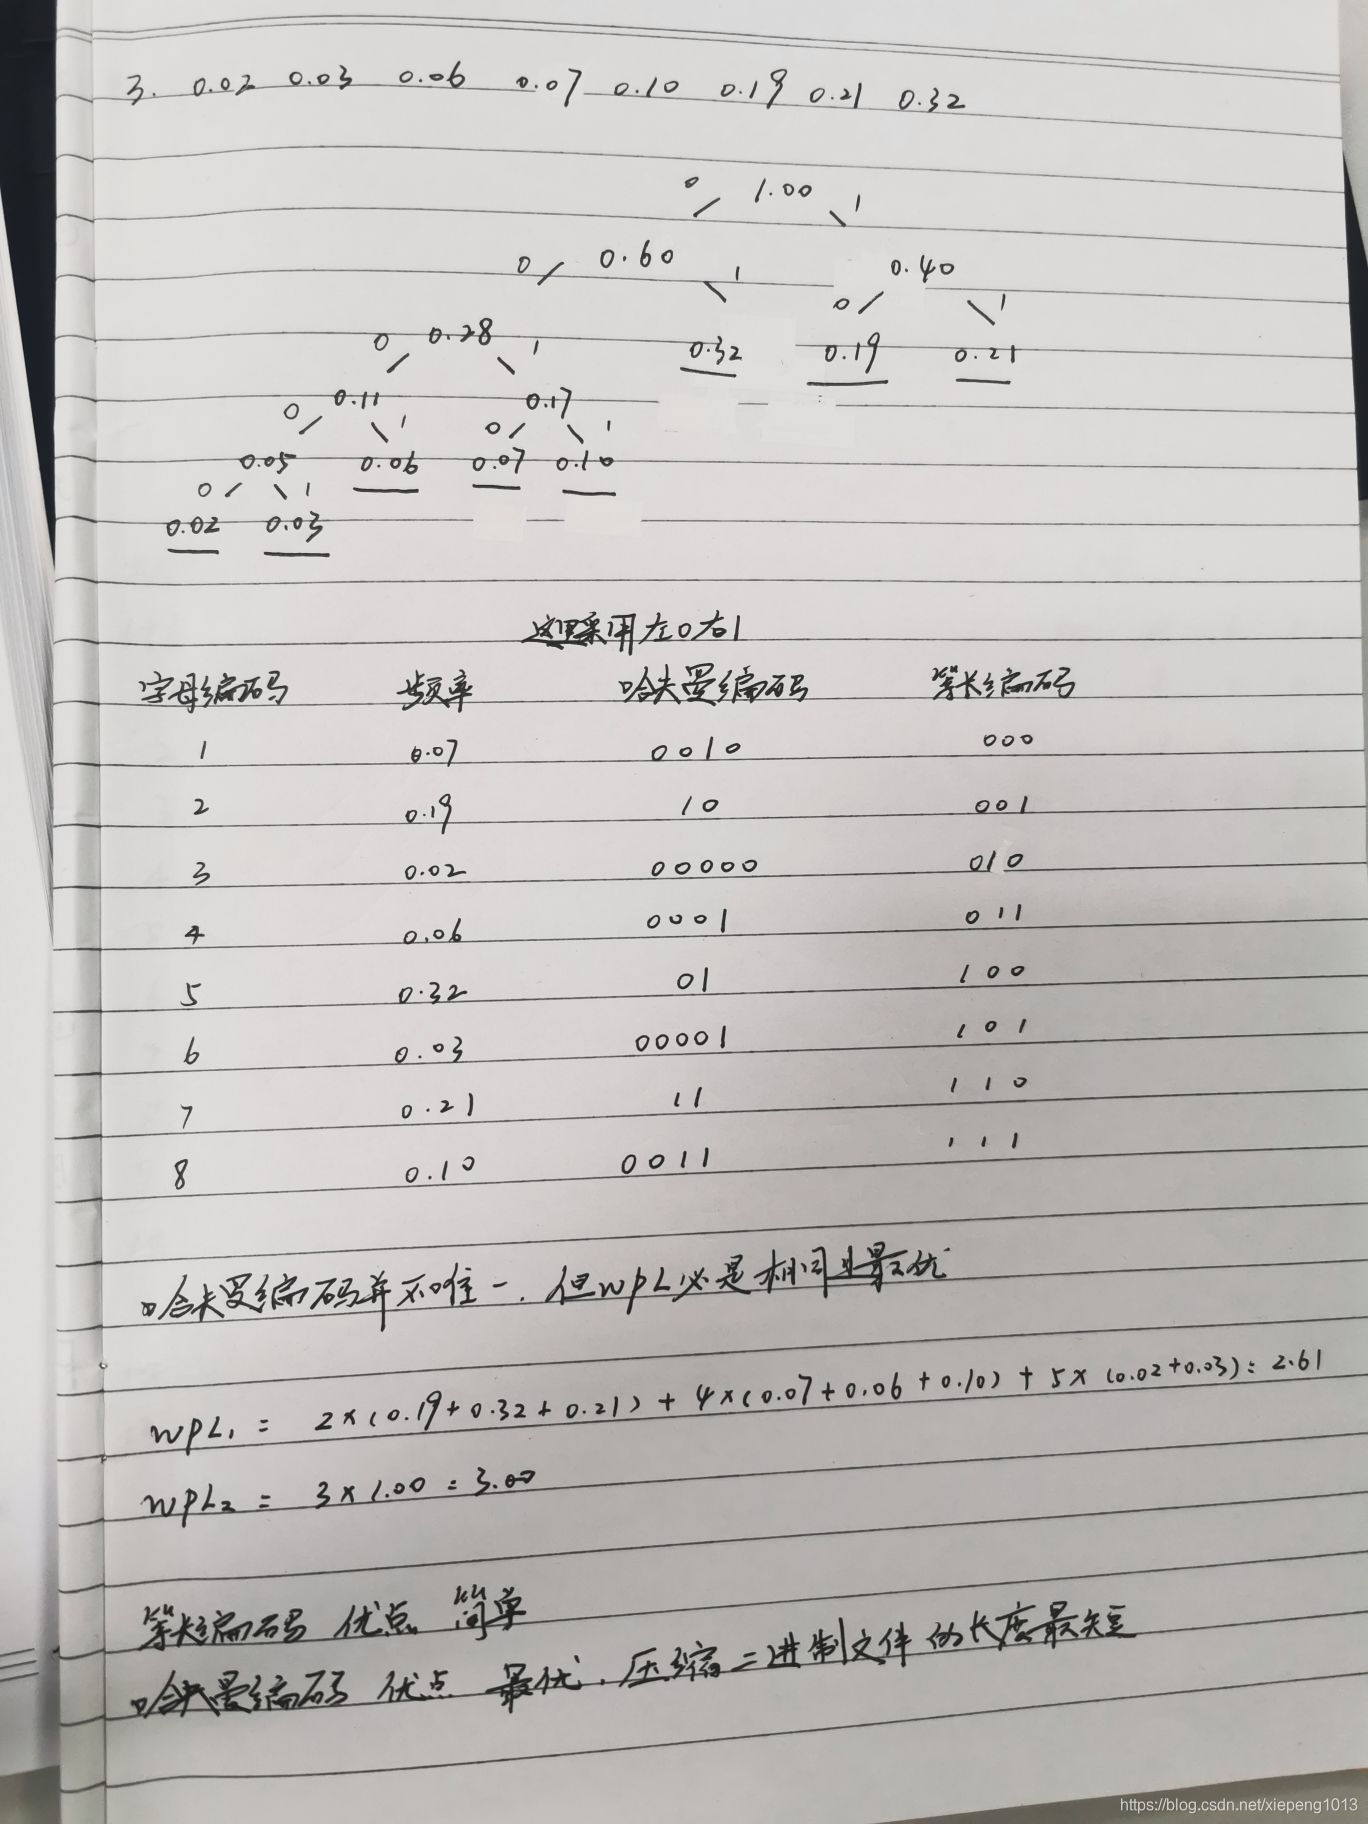 3. 0.02 0.03 0.06 0.07 0.10 0.19 0.21 0.32
0 1.00 1
0 0.60 1 0.40
0 1
0 0.28 1 0.32 0.19 0.21
0 0.11 1 0.17
0 1
0.05 0.06 0.07 0.10
0 1
0.02 0.03
这里采用左0右1
字母编码 频率 哈夫曼编码 等长编码
1 0.07 0010 000
2 0.19 10 001
3 0.02 00000 010
4 0.06 0001 011
5 0.32 01 100
6 0.03 00001 101
7 0.21 11 110
8 0.10 0011 111
哈夫曼编码并不唯一.但WPL必是相同且最优
WPL₁ = 2×(0.19+0.32+0.21)+4×(0.07+0.06+0.10)+5×(0.02+0.03)=2.61
WPL₂ = 3×1.00=3.00
等长编码 优点 简单
哈夫曼编码 优点 最优.压缩二进制文件的长度最短
https://blog.csdn.net/xiepeng1013